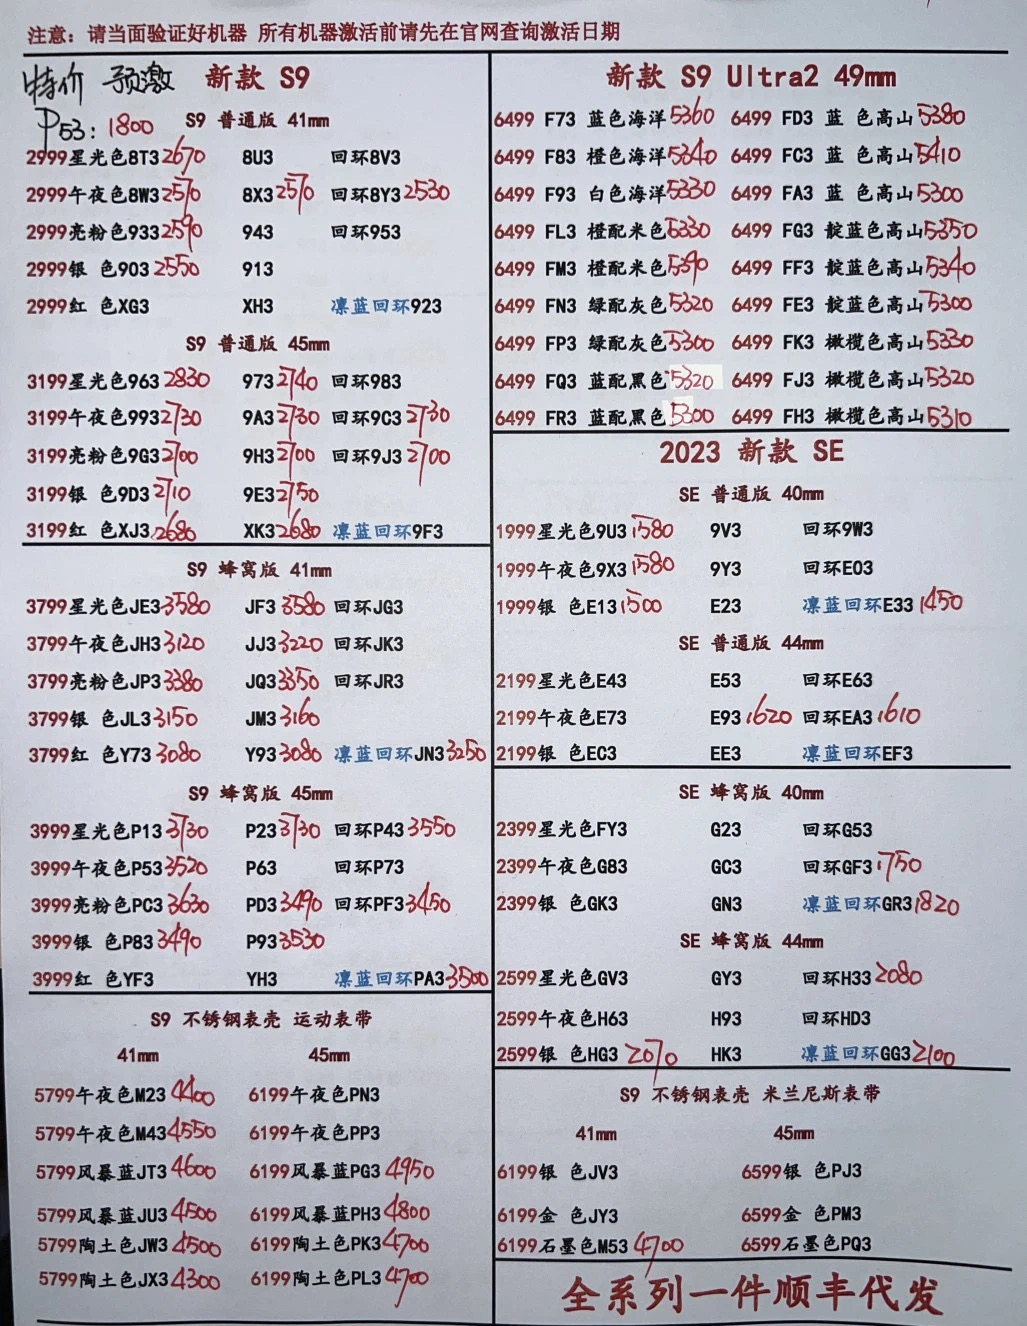 注意：请当面验证好机器 所有机器激活前请先在官网查询激活日期
特价 预激 新款 S9
P53：1800 S9 普通版 41mm
2999星光色8T3 2670 8U3 回环8V3
2999午夜色8W3 2570 8X3 2570 回环8Y3 2530
2999亮粉色933 2590 943 回环953
2999银 色903 2550 913
2999红 色XG3 XH3 凛蓝回环923
S9 普通版 45mm
3199星光色963 2830 973 2740 回环983
3199午夜色993 2730 9A3 2730 回环9C3 2730
3199亮粉色9G3 2700 9H3 2700 回环9J3 2700
3199银 色9D3 2710 9E3 2750
3199红 色XJ3 2680 XK3 2680 凛蓝回环9F3
S9 蜂窝版 41mm
3799星光色JE3 3580 JF3 3580 回环JG3
3799午夜色JH3 3120 JJ3 3220 回环JK3
3799亮粉色JP3 3380 JQ3 3350 回环JR3
3799银 色JL3 3150 JM3 3160
3799红 色Y73 3080 Y93 3080 凛蓝回环JN3 3250
S9 蜂窝版 45mm
3999星光色P13 3730 P23 3730 回环P43 3550
3999午夜色P53 3520 P63 回环P73
3999亮粉色PC3 3630 PD3 3490 回环PF3 3450
3999银 色P83 3490 P93 3530
3999红 色YF3 YH3 凛蓝回环PA3 3500
S9 不锈钢表壳 运动表带
41mm 45mm
5799午夜色M23 4400 6199午夜色PN3
5799午夜色M43 4550 6199午夜色PP3
5799风暴蓝JT3 4600 6199风暴蓝PG3 4950
5799风暴蓝JU3 4500 6199风暴蓝PH3 4800
5799陶土色JW3 4500 6199陶土色PK3 4700
5799陶土色JX3 4300 6199陶土色PL3 4700
新款 S9 Ultra2 49mm
6499 F73 蓝色海洋 5360 6499 FD3 蓝 色高山 5380
6499 F83 橙色海洋 5340 6499 FC3 蓝 色高山 5410
6499 F93 白色海洋 5330 6499 FA3 蓝 色高山 5300
6499 FL3 橙配米色 5330 6499 FG3 靛蓝色高山 5350
6499 FM3 橙配米色 5390 6499 FF3 靛蓝色高山 5340
6499 FN3 绿配灰色 5320 6499 FE3 靛蓝色高山 5300
6499 FP3 绿配灰色 5300 6499 FK3 橄榄色高山 5330
6499 FQ3 蓝配黑色 5320 6499 FJ3 橄榄色高山 5320
6499 FR3 蓝配黑色 5300 6499 FH3 橄榄色高山 5310
2023 新款 SE
SE 普通版 40mm
1999星光色9U3 1580 9V3 回环9W3
1999午夜色9X3 1580 9Y3 回环E03
1999银 色E13 1500 E23 凛蓝回环E33 1450
SE 普通版 44mm
2199星光色E43 E53 回环E63
2199午夜色E73 E93 1620 回环EA3 1610
2199银 色EC3 EE3 凛蓝回环EF3
SE 蜂窝版 40mm
2399星光色FY3 G23 回环G53
2399午夜色G83 GC3 回环GF3 1750
2399银 色GK3 GN3 凛蓝回环GR3 1820
SE 蜂窝版 44mm
2599星光色GV3 GY3 回环H33 2080
2599午夜色H63 H93 回环HD3
2599银 色HG3 2070 HK3 凛蓝回环GG3 2100
S9 不锈钢表壳 米兰尼斯表带
41mm 45mm
6199银 色JV3 6599银 色PJ3
6199金 色JY3 6599金 色PM3
6199石墨色M53 4700 6599石墨色PQ3
全系列一件顺丰代发